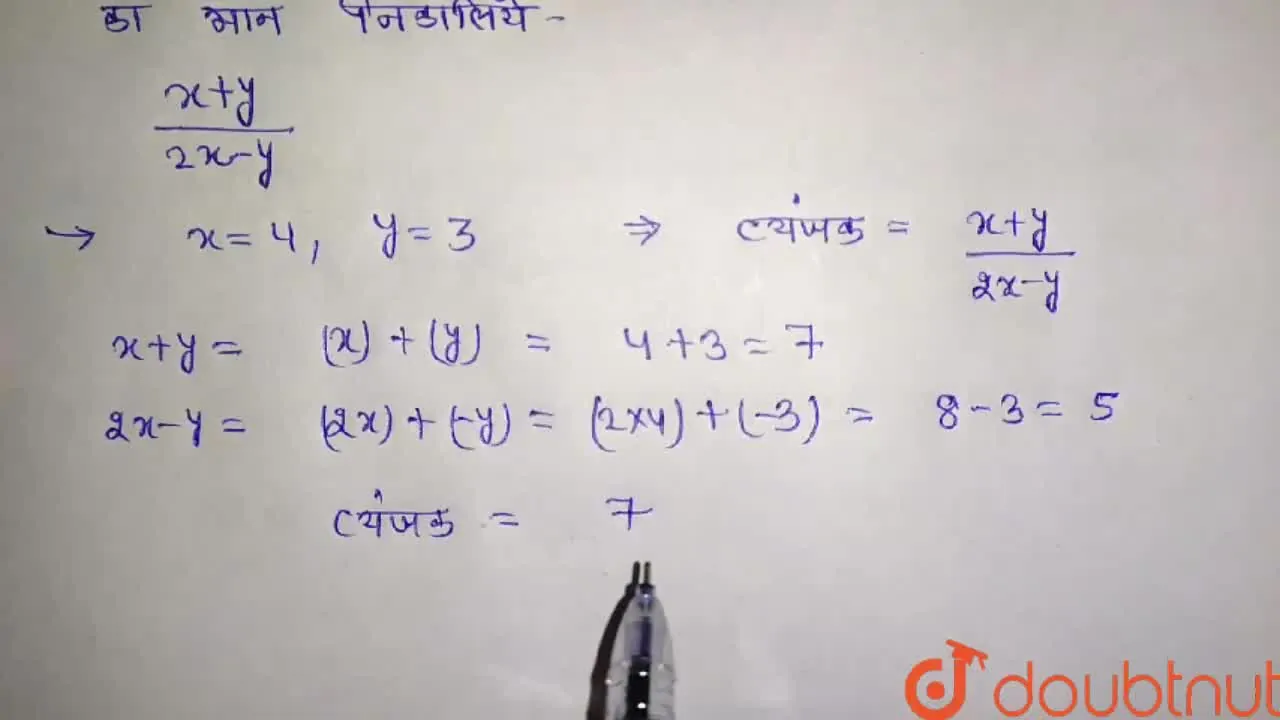 का मान निकालिये -
x+y
2x-y
→ x=4, y=3 ⇒ व्यंजक = x+y
2x-y
x+y = (x) + (y) = 4+3 = 7
2x-y = (2x) + (-y) = (2×4) + (-3) = 8-3 = 5
व्यंजक = 7
doubtnut